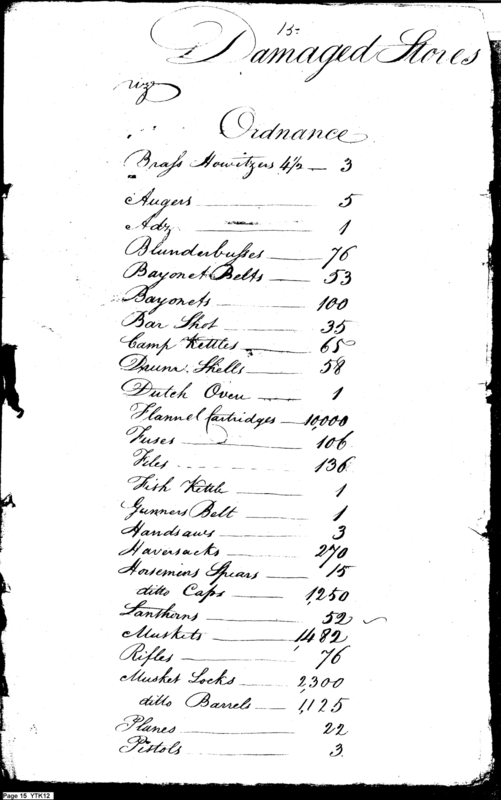 15
Damaged Stores
viz
Ordnance
Brass Howitzers 4½ — 3
Augers — 5
Adz — 1
Blunderbusses — 76
Bayonet Belts — 53
Bayonets — 100
Bar Shot — 35
Camp Kettles — 65
Drum Shells — 58
Dutch Oven — 1
Flannel Cartridges — 10,000
Fuses — 106
Files — 136
Fish Kettle — 1
Gunners Belt — 1
Handsaws — 3
Haversacks — 270
Horsemins Spears — 15
ditto Caps — 1,250
Lanthorns — 52
Muskets — 1,482
Rifles — 76
Musket Locks — 2,300
ditto Barrels — 1,125
Planes — 22
Pistols — 3
Page 15 YTK12